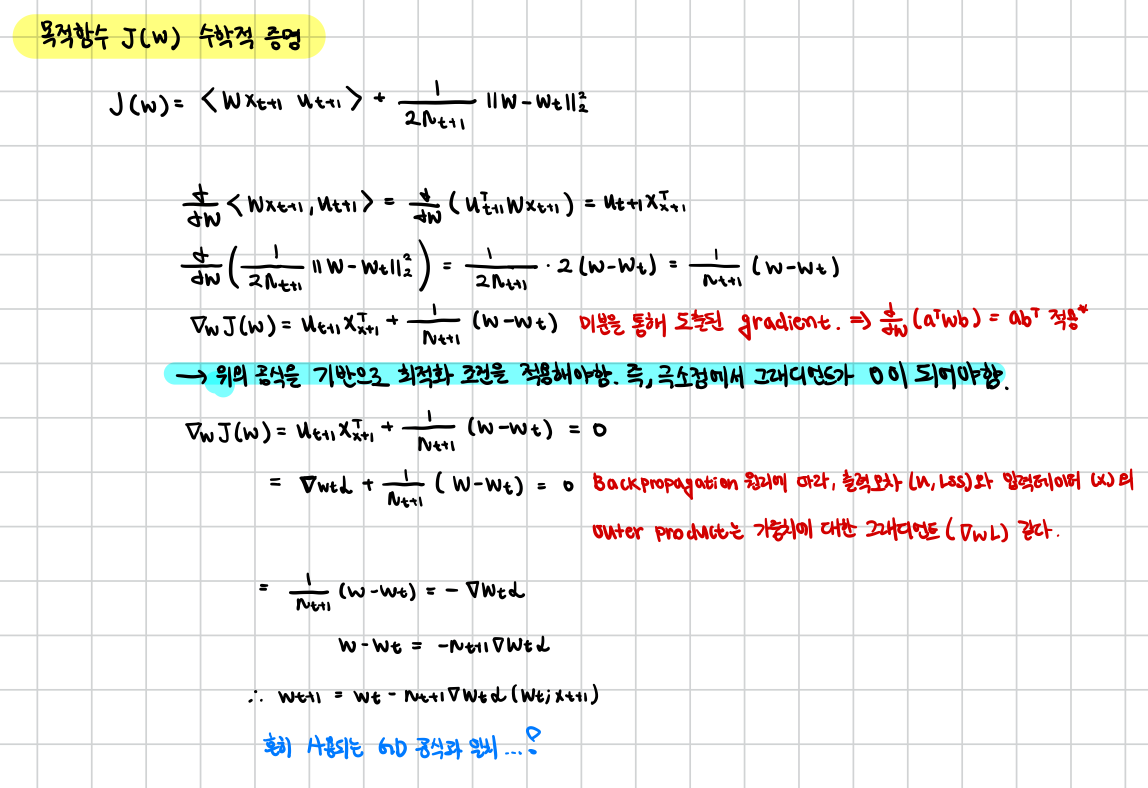 목적함수 J(W) 수학적 증명
J(w) = <Wx_{t+1} u_{t+1}> + \frac{1}{2η_{t+1}} ||W-W_t||_2^2
\frac{d}{dW} <Wx_{t+1}, u_{t+1}> = \frac{d}{dW} (u_{t+1}^T Wx_{t+1}) = u_{t+1} x_{x+1}^T
\frac{d}{dW} (\frac{1}{2η_{t+1}} ||W-W_t||_2^2) = \frac{1}{2η_{t+1}} · 2(W-W_t) = \frac{1}{η_{t+1}} (W-W_t)
∇_W J(W) = u_{t+1} x_{x+1}^T + \frac{1}{η_{t+1}} (W-W_t) 미분을 통해 도출된 gradient. ⇒ \frac{d}{dW} (a^T W b) = ab^T 적용*
→ 위의 공식을 기반으로 최적화 조건을 적용해야함. 즉, 극소점에서 그래디언트가 0이 되어야함.
∇_W J(W) = u_{t+1} x_{x+1}^T + \frac{1}{η_{t+1}} (W-W_t) = 0
= ∇_{W_t} L + \frac{1}{η_{t+1}} (W-W_t) = 0 Backpropagation 원리에 따라, 출력오차 (u, Lss)와 입력데이터 (x)의
outer product는 가중치에 대한 그래디언트 (∇_W L) 같다.
= \frac{1}{η_{t+1}} (W-W_t) = -∇W_t L
W-W_t = -η_{t+1} ∇W_t L
∴ W_{t+1} = W_t - η_{t+1} ∇W_t L(W_t; x_{t+1})
흔히 사용되는 GD 공식과 일치...!